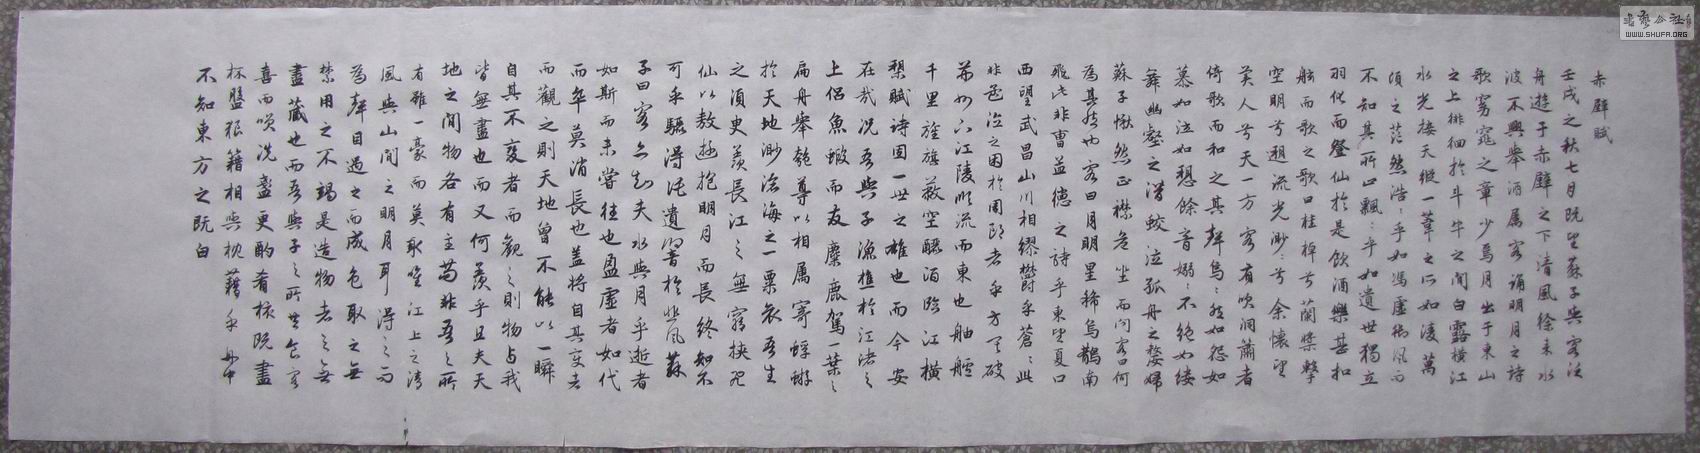 赤壁賦
壬戌之秋七月既望蘇子與客泛
舟遊于赤壁之下清風徐來水
波不興舉酒屬客誦明月之詩
歌窈窕之章少焉月出于東山
之上徘徊於斗牛之間白露橫江
水光接天縱一葦之所如凌萬
頃之茫然浩:乎如馮虛御風而
不知其所止飄:乎如遺世獨立
羽化而登仙於是飲酒樂甚扣
舷而歌之歌曰桂棹兮蘭槳擊
空明兮遡流光渺:兮余懷望
美人兮天一方客有吹洞簫者
倚歌而和之其聲烏:然如怨如
慕如泣如愬餘音嫋:不絕如縷
舞幽壑之潛蛟泣孤舟之嫠婦
蘇子愀然正襟危坐而問客曰何
為其然也客曰月明星稀烏鵲南
飛此非曹孟德之詩乎東望夏口
西望武昌山川相繆欝乎蒼:此
非孟德之困於周郎者乎方其破
荊州下江陵順流而東也舳艫
千里旌旗蔽空釃酒臨江橫
槊賦詩固一世之雄也而今安
在哉況吾與子漁樵於江渚之
上侶魚蝦而友麋鹿駕一葉之
扁舟舉匏尊以相屬寄蜉蝣
於天地渺滄海之一粟哀吾生
之須臾羨長江之無窮挾飛
仙以敖遊抱明月而長終知不
可乎驟得託遺響於悲風蘇
子曰客亦知夫水與月乎逝者
如斯而未嘗往也盈虛者如代
而卒莫消長也蓋將自其變者
而觀之則天地曾不能以一瞬
自其不變者而觀之則物與我
皆無盡也而又何羨乎且夫天
地之間物各有主苟非吾之所
有雖一豪而莫取唯江上之清
風與山間之明月耳得之而
為聲目遇之而成色取之無
禁用之不竭是造物者之無
盡藏也而吾與子之所共食客
喜而笑洗盞更酌肴核既盡
杯盤狼籍相與枕藉乎舟中
不知東方之既白
書藝公社
WWW.SHUFA.ORG